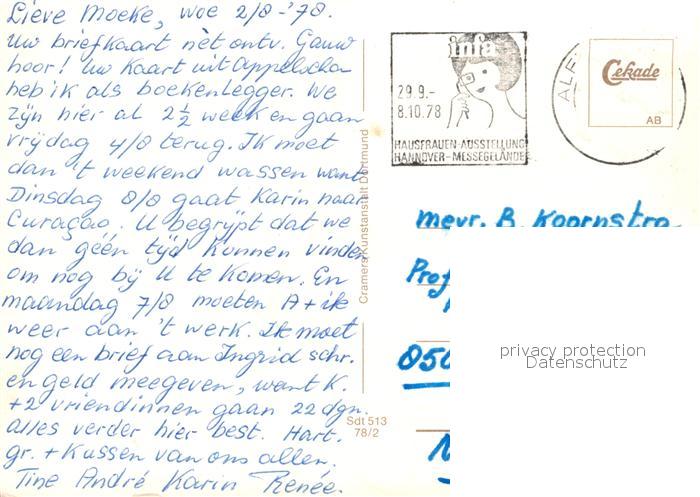 Lieve Moeke, woe 2/8-'78.
Uw briefkaart nèt ontv. Gauw
hoor! Uw kaart uit Appelscha
heb ik als boekenlegger. We
zijn hier al 2 1/2 week en gaan
vrijdag 4/8 terug. Ik moet
dan 't weekend wassen want
Dinsdag 8/8 gaat Karin naar
Curaçao. U begrijpt dat we
dan géén tijd kunnen vinden
om nog bij U te komen. En
maandag 7/8 moeten A + ik
weer aan 't werk. Ik moet
nog een brief aan Ingrid schr.
en geld meegeven, want K.
+ 2 vriendinnen gaan 22 dgn.
alles verder hier best. Hart.
gr. + kussen van ons allen.
Tine André Karin Renée.
Cramers Kunstanstalt Dortmund
Sdt 513
78/2
infa
29.9.-
8.10.78
HAUSFRAUEN-AUSSTELLUNG
HANNOVER-MESSEGELÄNDE
ALF
Cekade
AB
mevr. B. Koornstra
Prof
050
N
privacy protection
Datenschutz